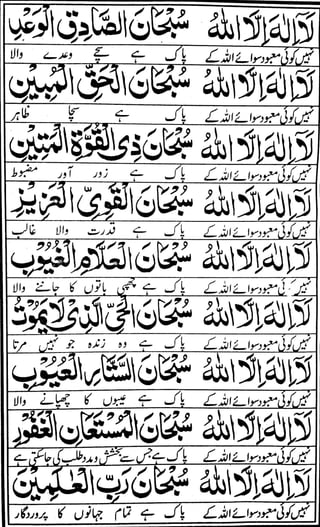 لَا إِلٰهَ إِلَّا اللهُ سُبْحَانَ الصَّادِقِ الْوَعْدِ
نہیں کوئی معبود سوائے اللہ کے پاک ہے سچے وعدے والا
لَا إِلٰهَ إِلَّا اللهُ سُبْحَانَ الْحَقِّ الْمُبِيْنِ
نہیں کوئی معبود سوائے اللہ کے پاک ہے سچا ظاہر
لَا إِلٰهَ إِلَّا اللهُ سُبْحَانَ ذِي الْقُوَّةِ الْمَتِيْنِ
نہیں کوئی معبود سوائے اللہ کے پاک ہے زور آور مضبوط
لَا إِلٰهَ إِلَّا اللهُ سُبْحَانَ الْقَوِيِّ الْعَزِيْزِ
نہیں کوئی معبود سوائے اللہ کے پاک ہے قدرت والا غالب
لَا إِلٰهَ إِلَّا اللهُ سُبْحَانَ الْعَلَّامِ الْغُيُوْبِ
نہیں کوئی معبود سوائے اللہ کے پاک ہے چھپی باتوں کا جاننے والا
لَا إِلٰهَ إِلَّا اللهُ سُبْحَانَ الْحَيِّ الَّذِيْ لَا يَمُوْتُ
نہیں کوئی معبود سوائے اللہ کے پاک ہے وہ زندہ جو نہیں مرتا
لَا إِلٰهَ إِلَّا اللهُ سُبْحَانَ السَّتَّارِ الْعُيُوْبِ
نہیں کوئی معبود سوائے اللہ کے پاک ہے عیبوں کا چھپانے والا
لَا إِلٰهَ إِلَّا اللهُ سُبْحَانَ الْمُسْتَعَانِ الْغَفُوْرِ
نہیں کوئی معبود سوائے اللہ کے پاک ہے جس سے بخشش و مدد طلب کی جاسکتی ہے
لَا إِلٰهَ إِلَّا اللهُ سُبْحَانَ رَبِّ الْعٰلَمِيْنَ
نہیں کوئی معبود سوائے اللہ کے پاک ہے تمام جہانوں کا پروردگار